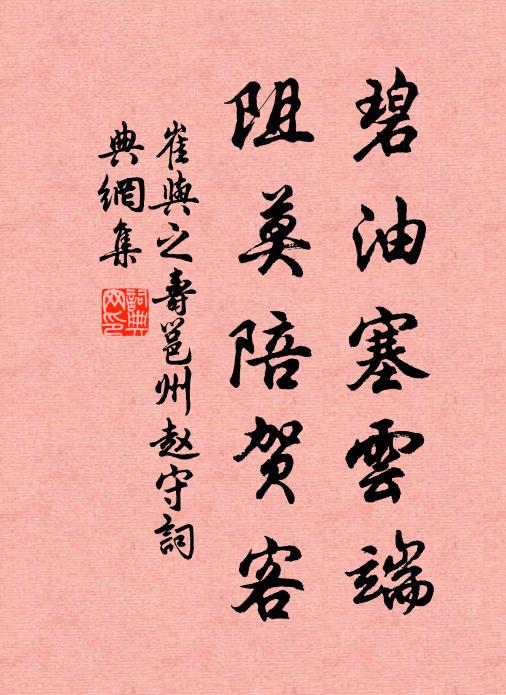 碧油塞雲端
阻莫陪贺客
崔與之壽邕州赵守詞
典網集
詞典网印